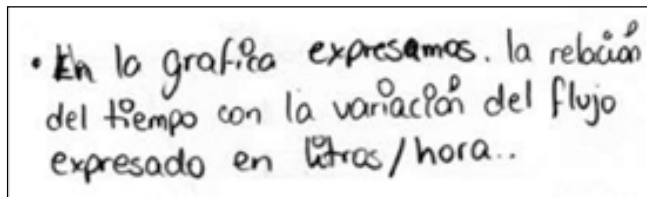 • En la grafica expresamos. la relación
del tiempo con la variación del flujo
expresado en litros/hora..